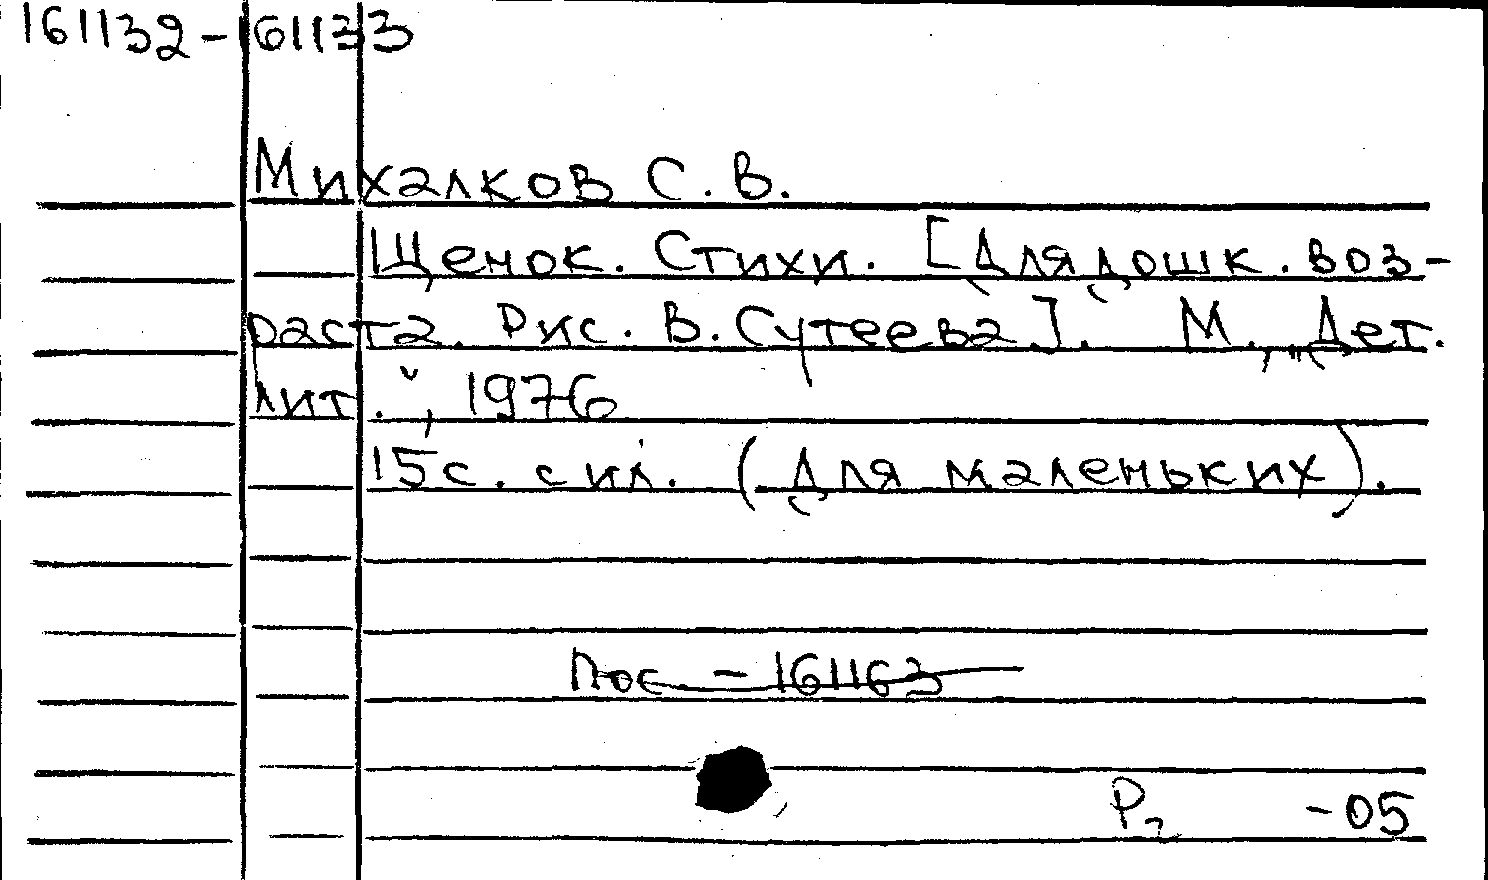 161132-161133
Михалков С. В.
Щенок. Стихи. [Для дошк. воз-
раста. Рис. В. Сутеева]. М., „Дет.
лит.", 1976
15 с. с ил. (Для маленьких).
Пос. - 161163
Р2 -05